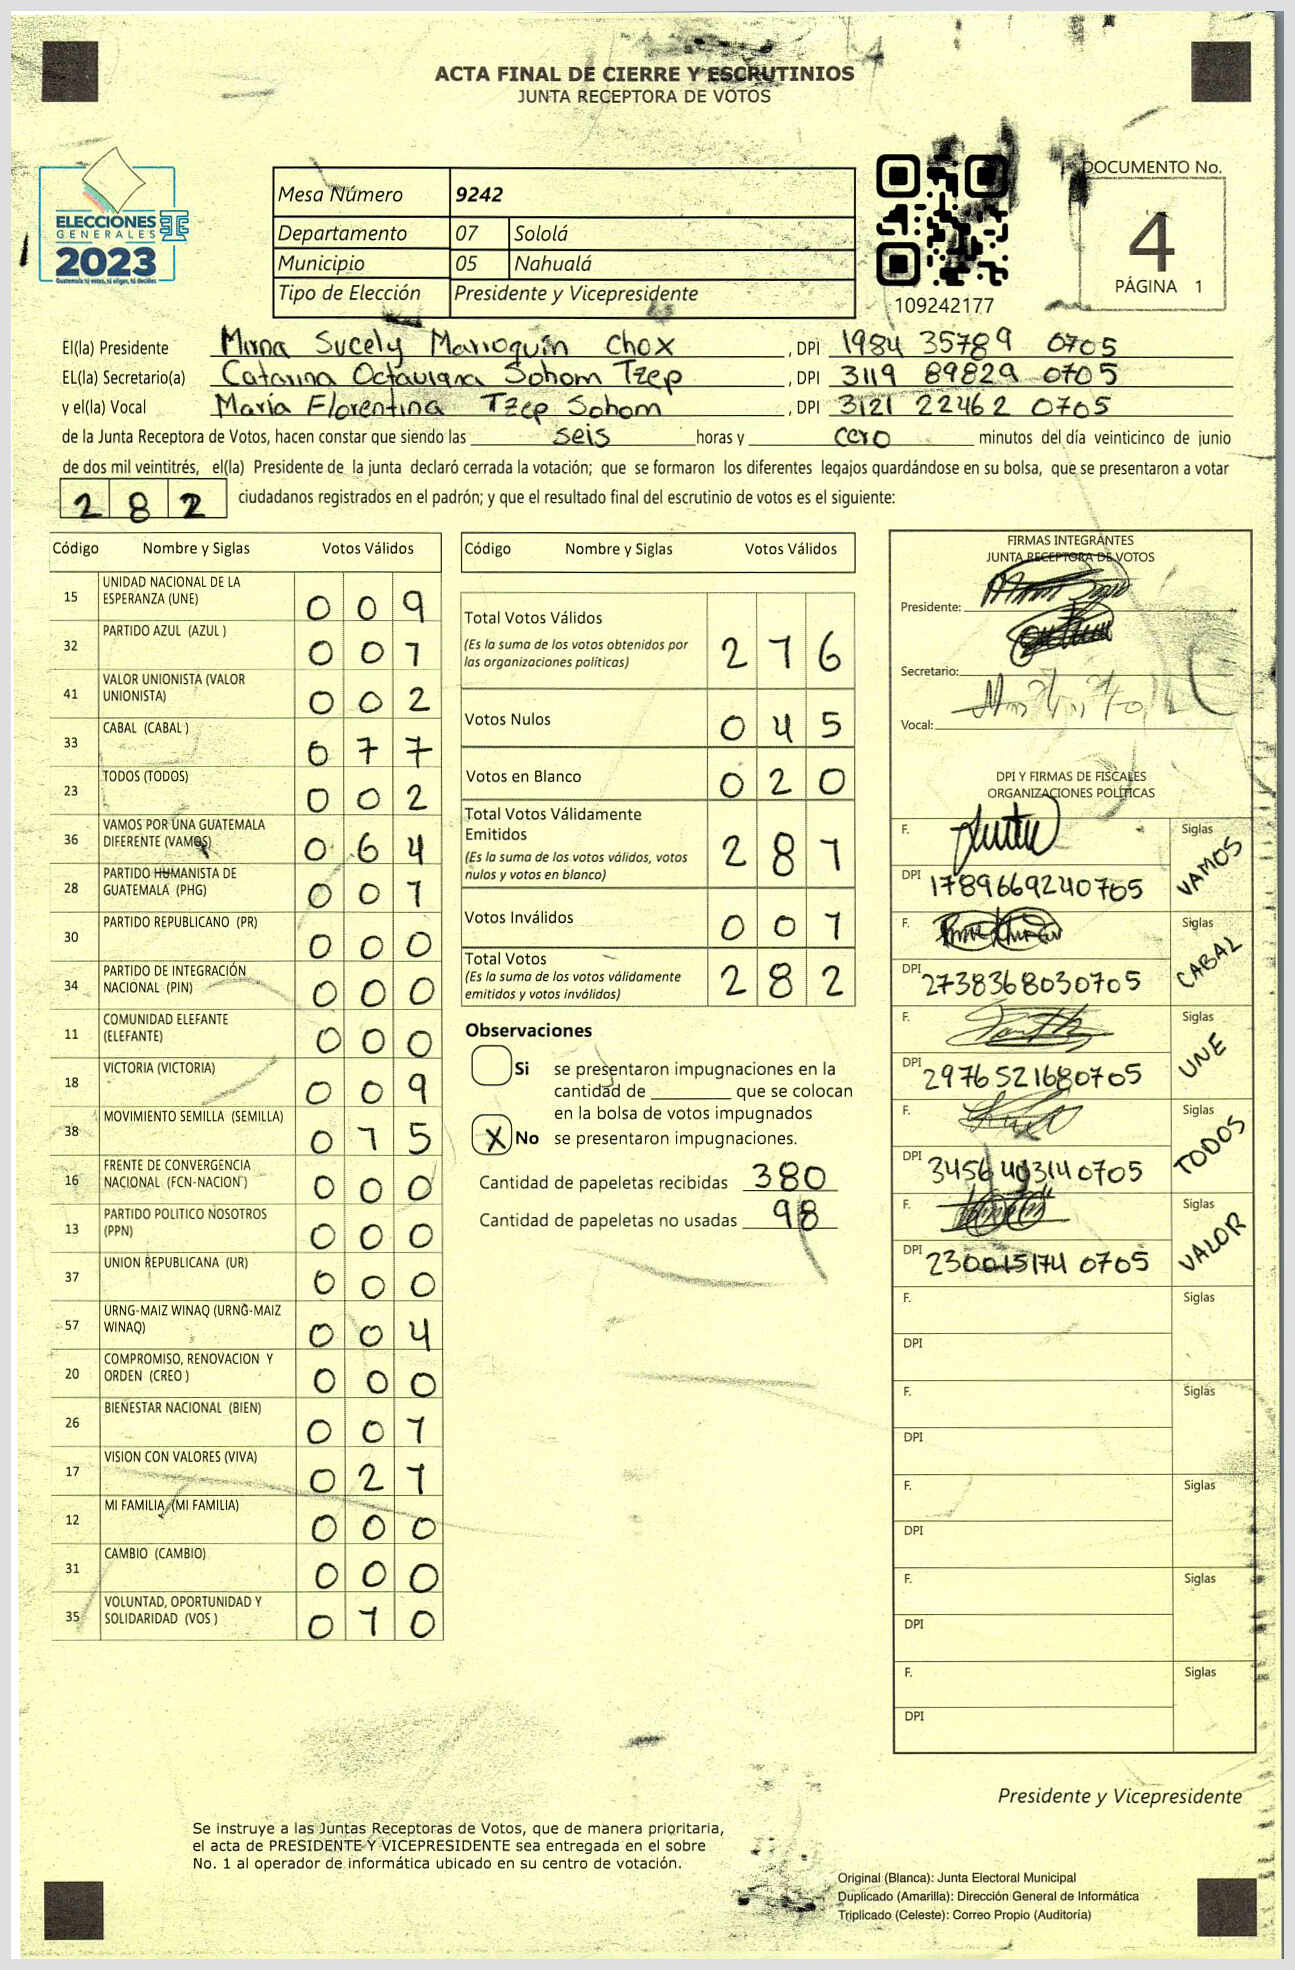 ACTA FINAL DE CIERRE Y ESCRUTINIOS
JUNTA RECEPTORA DE VOTOS
ELECCIONES
GENERALES
2023
Guatemala tú votas, tú eliges, tú decides
Mesa Número 9242
Departamento 07 Sololá
Municipio 05 Nahualá
Tipo de Elección Presidente y Vicepresidente
109242177
DOCUMENTO No.
4
PÁGINA 1
El(la) Presidente Mirna Sucely Marroquín Chox , DPI 1984 35789 0705
EL(la) Secretario(a) Catarina Octaviana Sohom Tzep , DPI 3119 89829 0705
y el(la) Vocal María Florentina Tzep Sohom , DPI 3121 22462 0705
de la Junta Receptora de Votos, hacen constar que siendo las seis horas y cero minutos del día veinticinco de junio
de dos mil veintitrés, el(la) Presidente de la junta declaró cerrada la votación; que se formaron los diferentes legajos guardándose en su bolsa, que se presentaron a votar
282 ciudadanos registrados en el padrón; y que el resultado final del escrutinio de votos es el siguiente:
Código Nombre y Siglas Votos Válidos
15 UNIDAD NACIONAL DE LA ESPERANZA (UNE) 0 0 9
32 PARTIDO AZUL (AZUL ) 0 0 1
41 VALOR UNIONISTA (VALOR UNIONISTA) 0 0 2
33 CABAL (CABAL ) 0 7 7
23 TODOS (TODOS) 0 0 2
36 VAMOS POR UNA GUATEMALA DIFERENTE (VAMOS) 0 6 4
28 PARTIDO HUMANISTA DE GUATEMALA (PHG) 0 0 1
30 PARTIDO REPUBLICANO (PR) 0 0 0
34 PARTIDO DE INTEGRACIÓN NACIONAL (PIN) 0 0 0
11 COMUNIDAD ELEFANTE (ELEFANTE) 0 0 0
18 VICTORIA (VICTORIA) 0 0 9
38 MOVIMIENTO SEMILLA (SEMILLA) 0 1 5
16 FRENTE DE CONVERGENCIA NACIONAL (FCN-NACION ) 0 0 0
13 PARTIDO POLITICO NOSOTROS (PPN) 0 0 0
37 UNION REPUBLICANA (UR) 0 0 0
57 URNG-MAIZ WINAQ (URNG-MAIZ WINAQ) 0 0 4
20 COMPROMISO, RENOVACION Y ORDEN (CREO ) 0 0 0
26 BIENESTAR NACIONAL (BIEN) 0 0 1
17 VISION CON VALORES (VIVA) 0 2 1
12 MI FAMILIA (MI FAMILIA) 0 0 0
31 CAMBIO (CAMBIO) 0 0 0
35 VOLUNTAD, OPORTUNIDAD Y SOLIDARIDAD (VOS ) 0 1 0
Código Nombre y Siglas Votos Válidos
Total Votos Válidos 2 1 6
(Es la suma de los votos obtenidos por
las organizaciones políticas)
Votos Nulos 0 4 5
Votos en Blanco 0 2 0
Total Votos Válidamente
Emitidos 2 8 1
(Es la suma de los votos válidos, votos
nulos y votos en blanco)
Votos Inválidos 0 0 1
Total Votos 2 8 2
(Es la suma de los votos válidamente
emitidos y votos inválidos)
Observaciones
Si se presentaron impugnaciones en la
cantidad de ________ que se colocan
en la bolsa de votos impugnados
X No se presentaron impugnaciones.
Cantidad de papeletas recibidas 380
Cantidad de papeletas no usadas 98
FIRMAS INTEGRANTES
JUNTA RECEPTORA DE VOTOS
Presidente:
Secretario:
Vocal:
DPI Y FIRMAS DE FISCALES
ORGANIZACIONES POLÍTICAS
F. Siglas VAMOS
DPI 1789669240705
F. Siglas CABAL
DPI 2738368030705
F. Siglas UNE
DPI 2976521680705
F. Siglas TODOS
DPI 3456403140705
F. Siglas VALOR
DPI 230015174 0705
F. Siglas
DPI
F. Siglas
DPI
F. Siglas
DPI
F. Siglas
DPI
F. Siglas
DPI
Presidente y Vicepresidente
Se instruye a las Juntas Receptoras de Votos, que de manera prioritaria,
el acta de PRESIDENTE Y VICEPRESIDENTE sea entregada en el sobre
No. 1 al operador de informática ubicado en su centro de votación.
Original (Blanca): Junta Electoral Municipal
Duplicado (Amarilla): Dirección General de Informática
Triplicado (Celeste): Correo Propio (Auditoría)